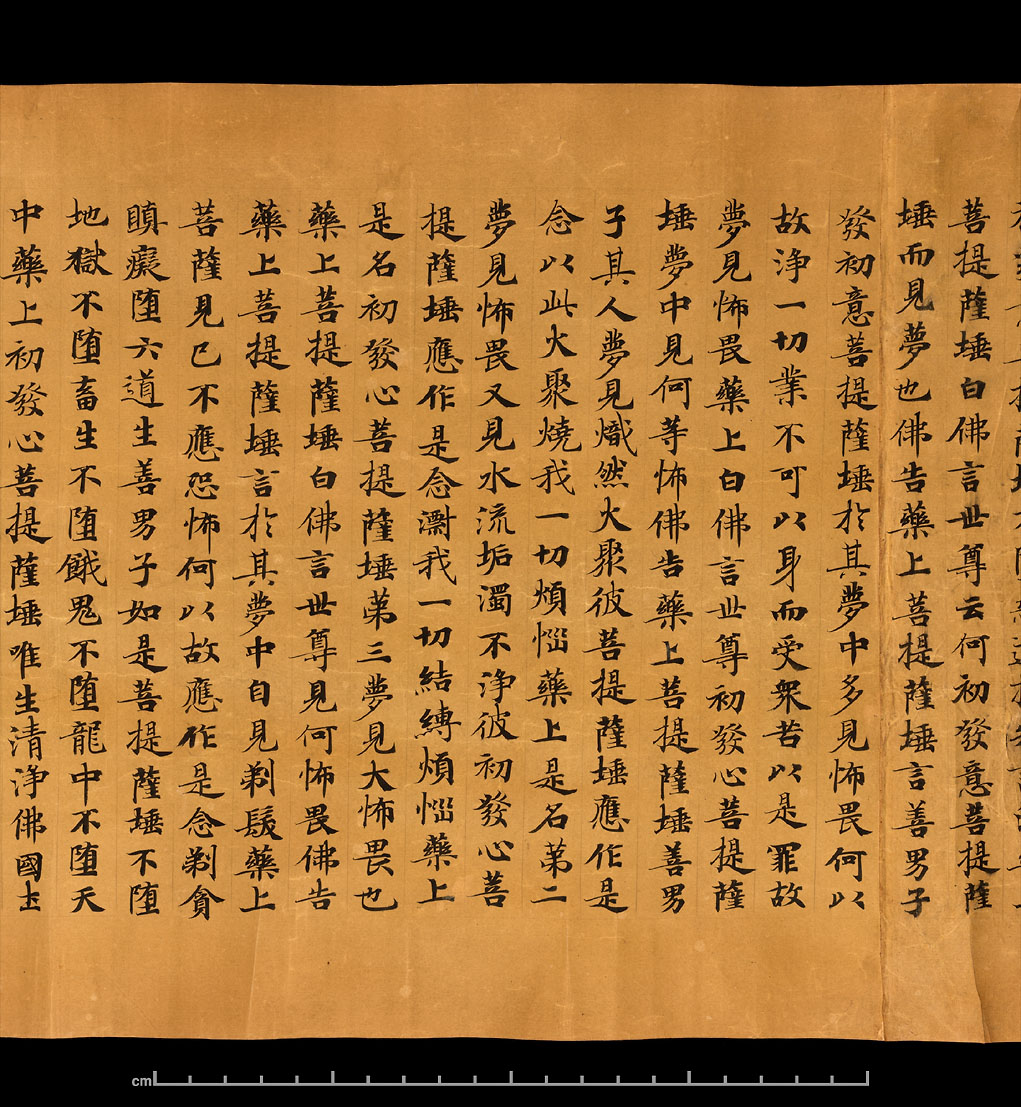 菩提薩埵白佛言世尊云何初發意菩提薩
埵而見夢也佛告藥上菩提薩埵言善男子
發初意菩提薩埵於其夢中多見怖畏何以
故淨一切業不可以身而受眾苦以是罪故
夢見怖畏藥上白佛言世尊初發心菩提薩
埵夢中見何等怖佛告藥上菩提薩埵善男
子其人夢見熾然大聚彼菩提薩埵應作是
念以此火聚燒我一切煩惱藥上是名第二
夢見怖畏又見水流垢濁不淨彼初發心菩
提薩埵應作是念漂我一切結縛煩惱藥上
是名初發心菩提薩埵第三夢見大怖畏也
藥上菩提薩埵白佛言世尊見何怖畏佛告
藥上菩提薩埵言於其夢中自見剃髮藥上
菩薩見已不應恐怖何以故應作是念剃貪
瞋癡墮六道生善男子如是菩提薩埵不墮
地獄不墮畜生不墮餓鬼不墮龍中不墮天
中藥上初發心菩提薩埵唯生清淨佛國土